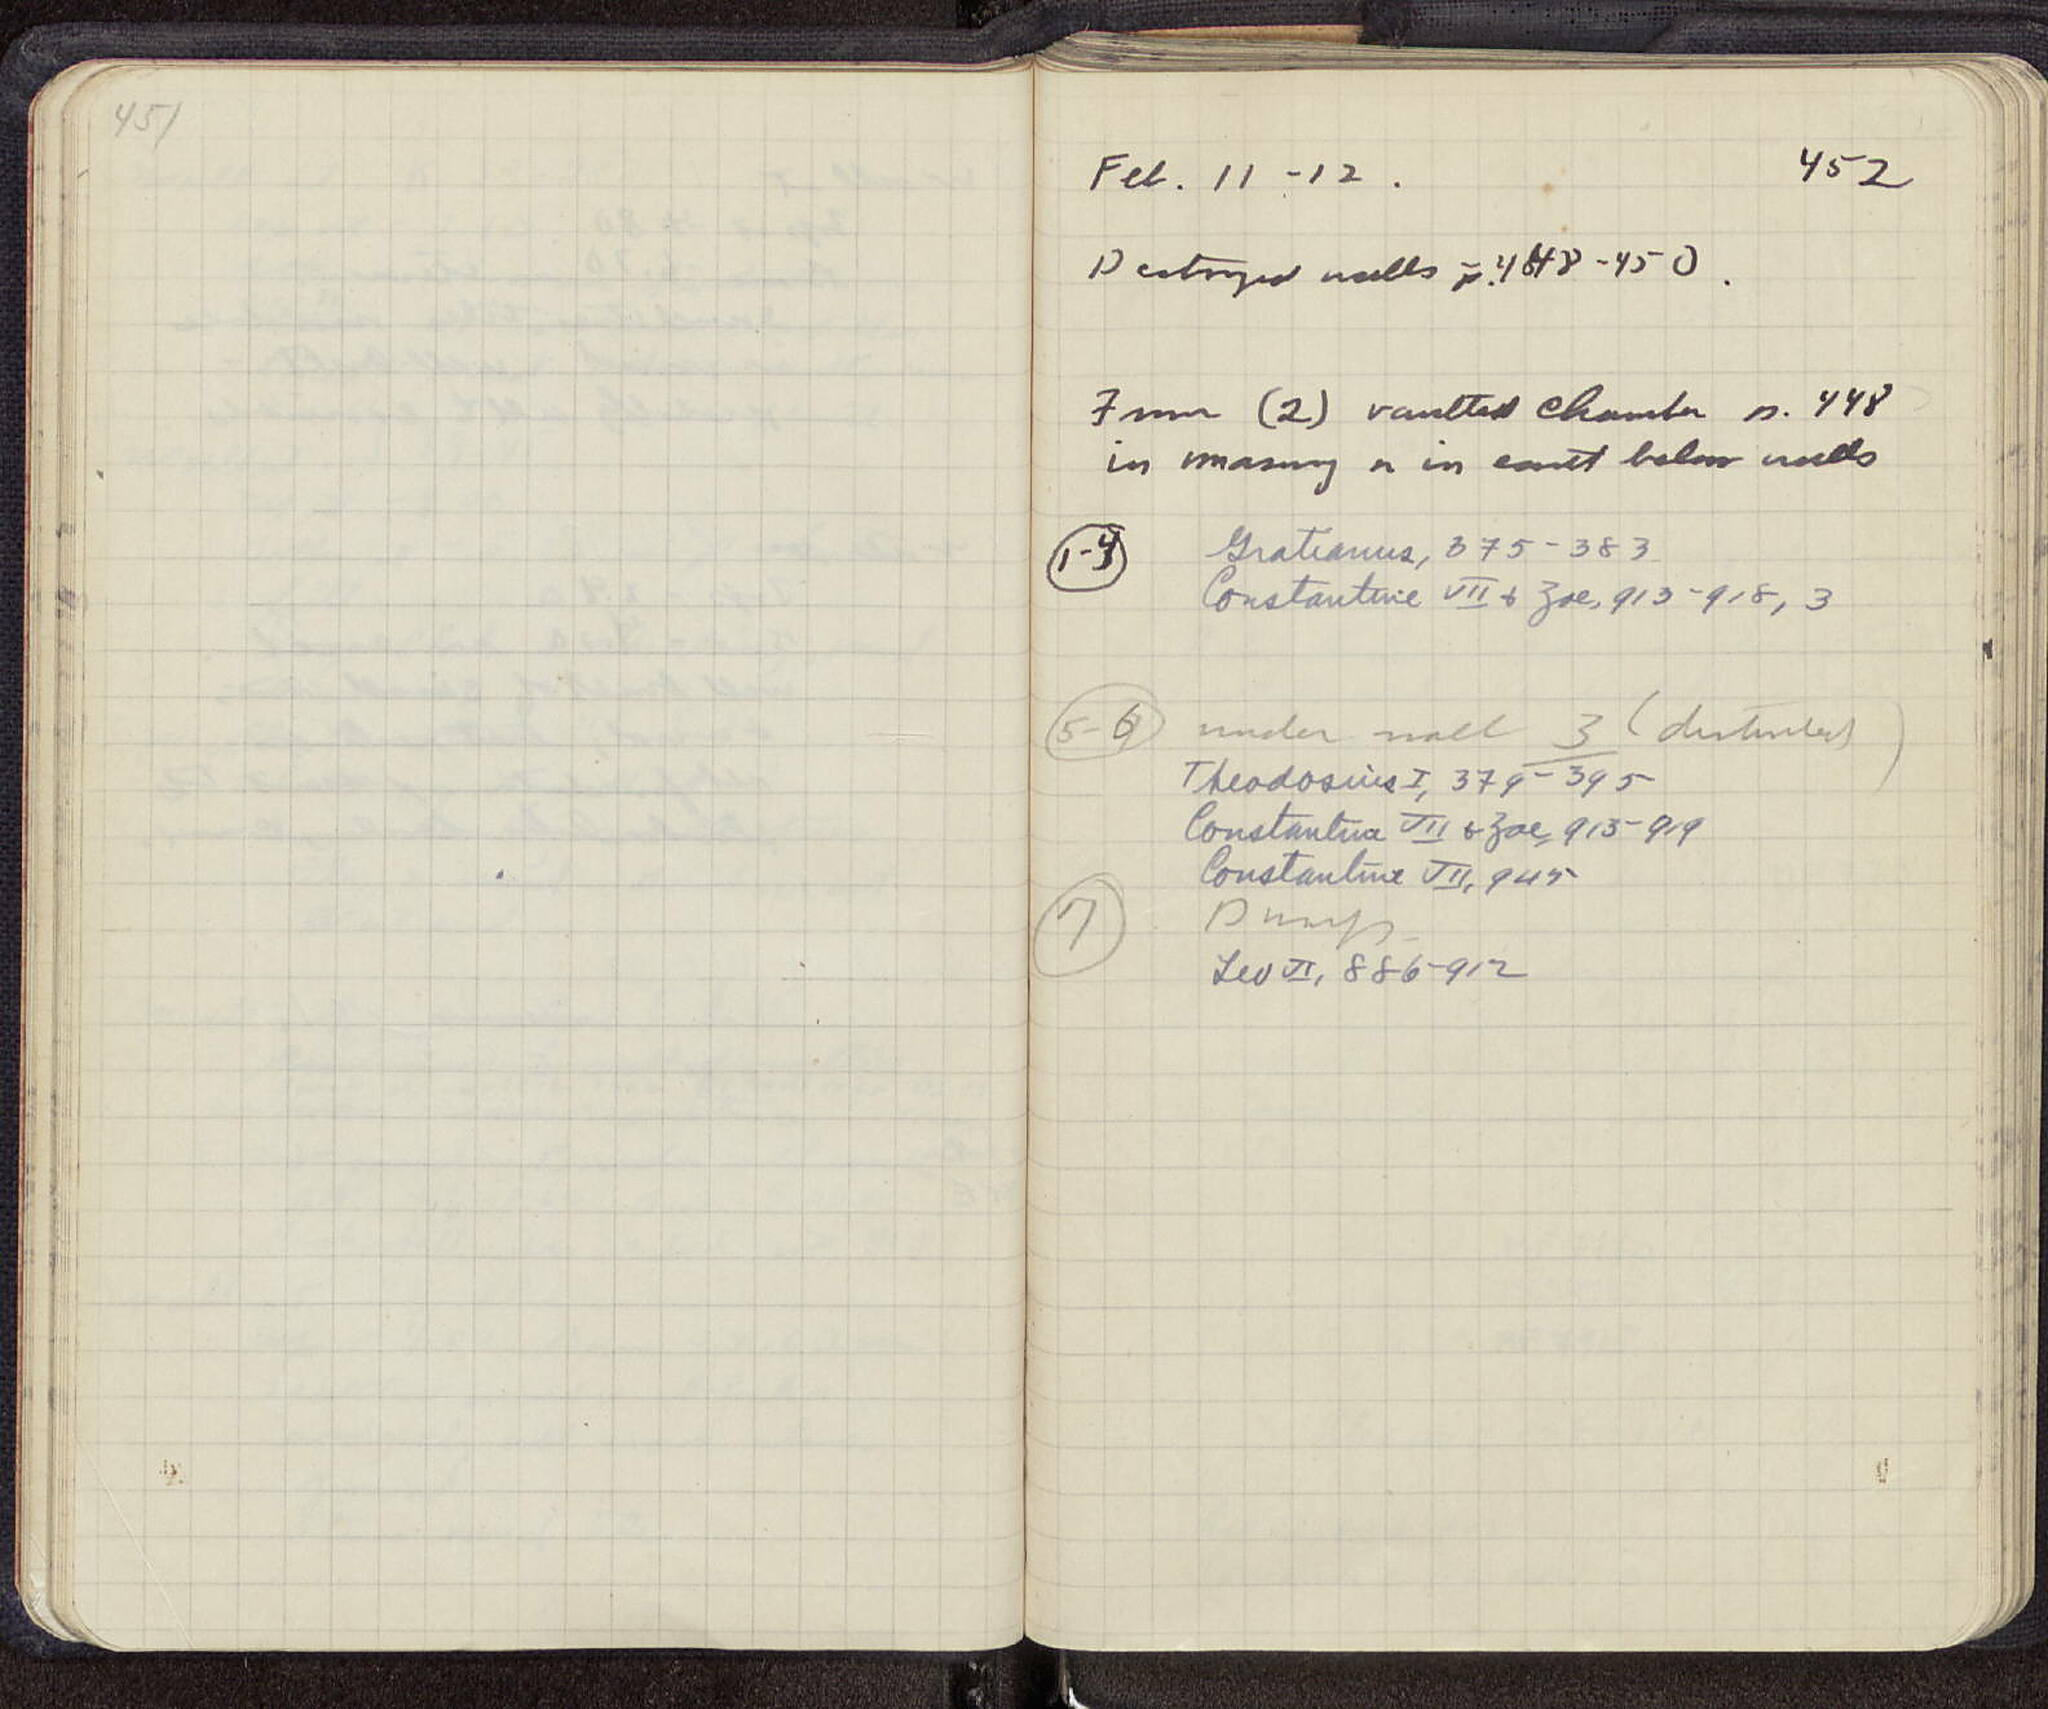 451
Feb. 11-12.
452
Destroyed walls p. 448-450.
From (2) vaulted chamber p. 448
in masonry or in earth below walls
1-4
Gratianus, 375-383
Constantine VII & Zoe, 913-918, 3
5-6
under wall 3 (disturbed)
Theodosius I, 379-395
Constantine VII & Zoe, 913-919
Constantine VII, 945
7
Dump
Leo VI, 886-912